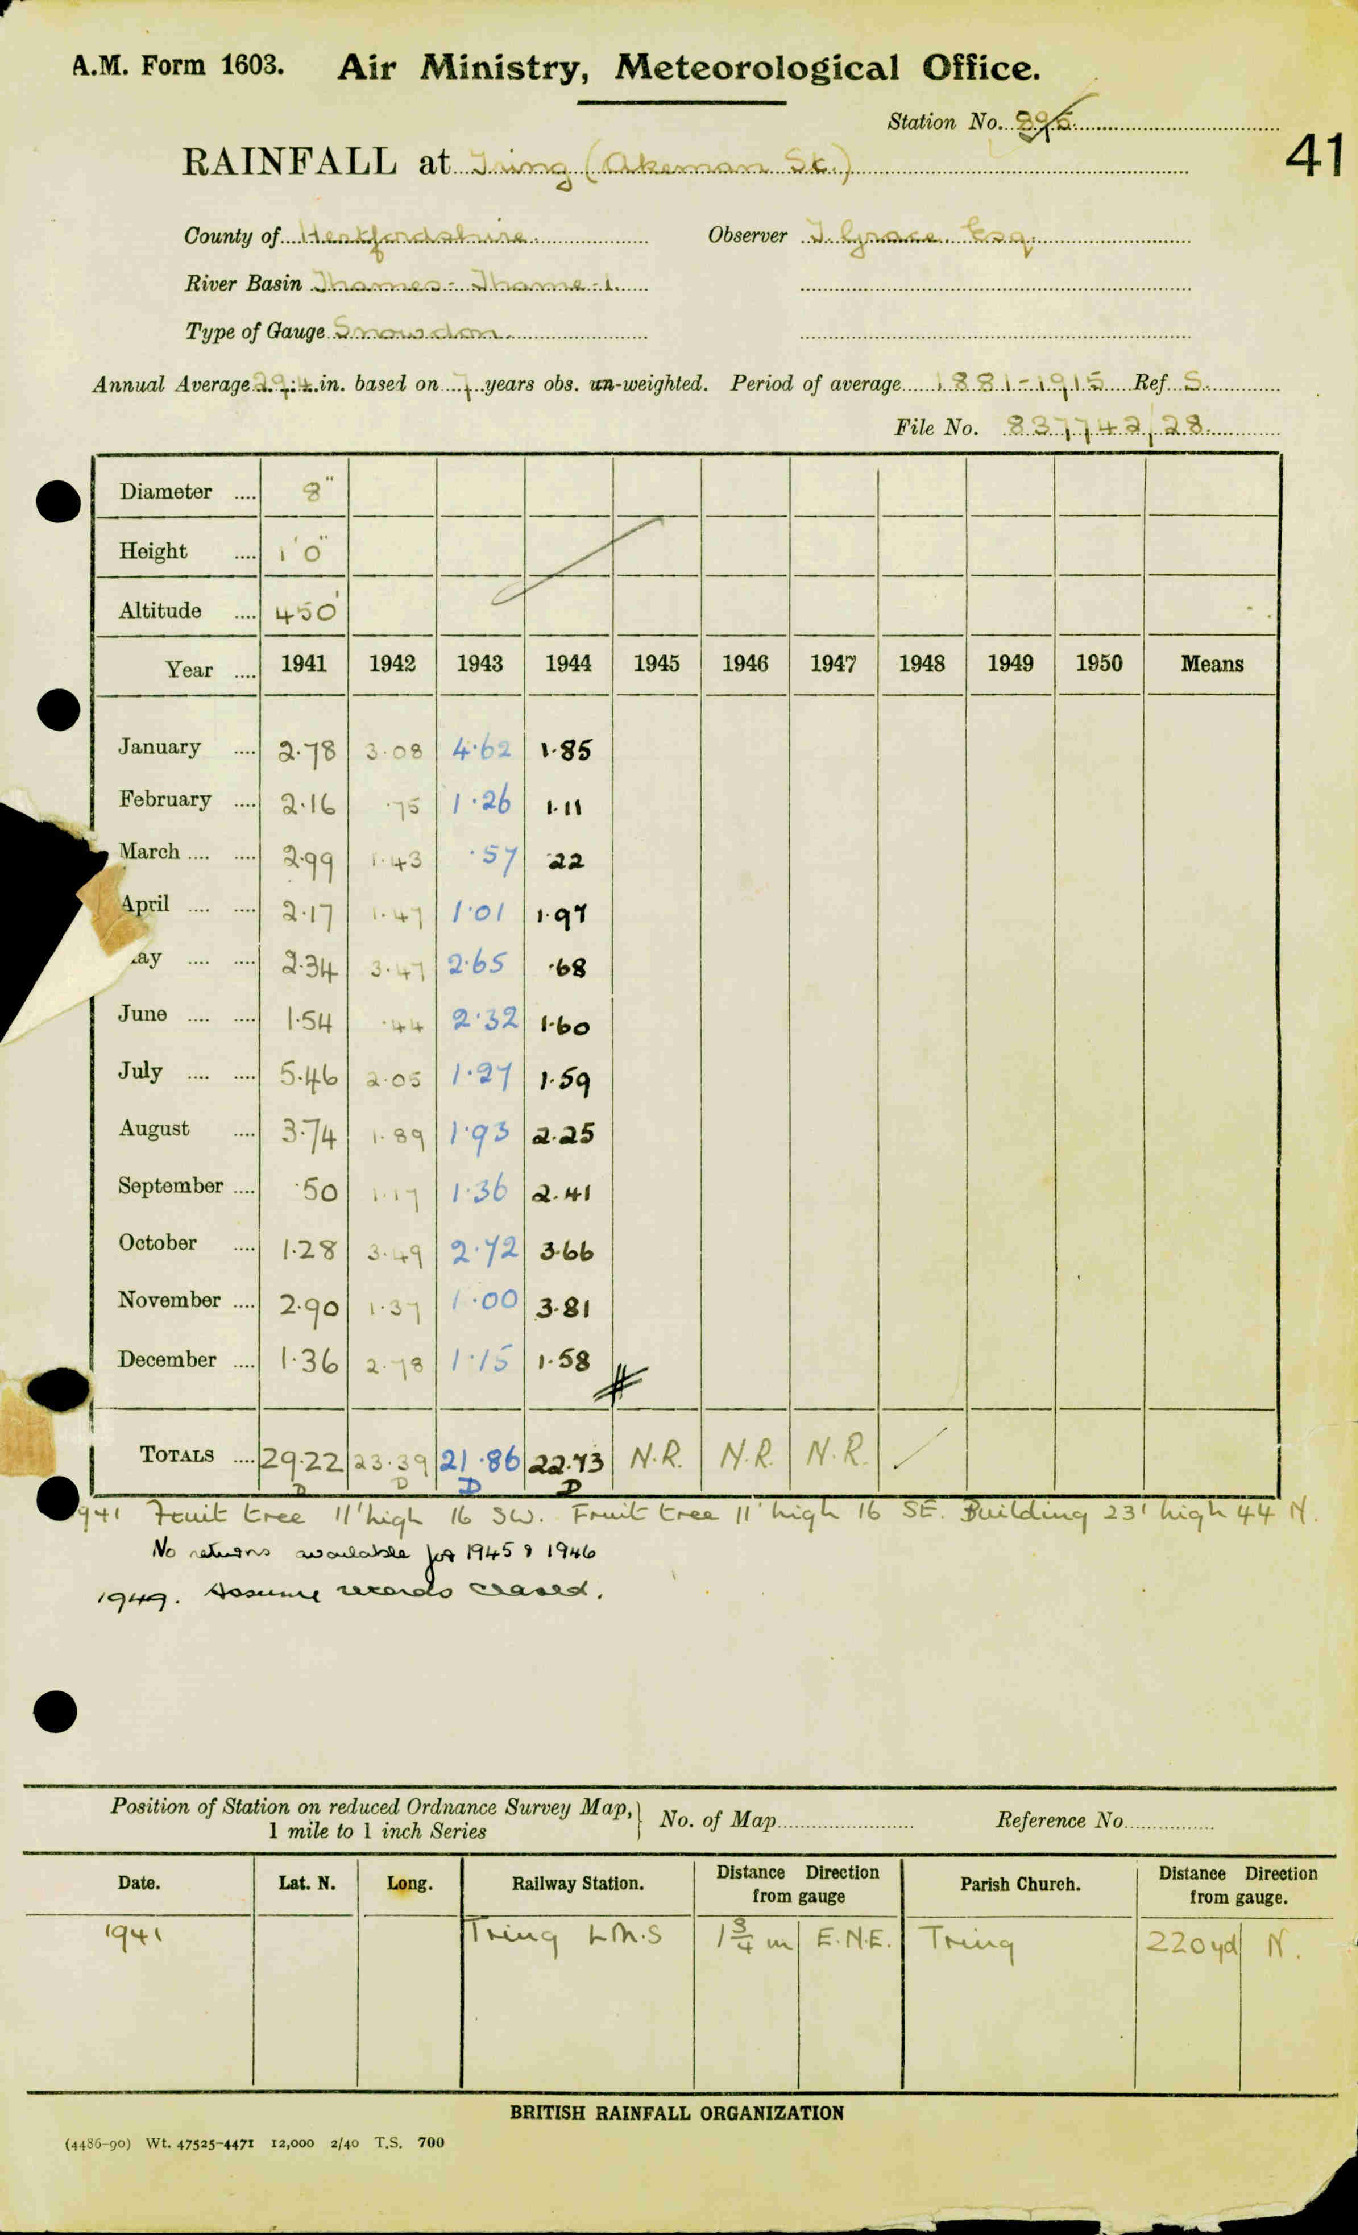 A.M. Form 1603. Air Ministry, Meteorological Office.
Station No. 895
41
RAINFALL at Tring (Akeman St.)
County of Hertfordshire Observer J. Grace Esq.
River Basin Thames - Thame - 1.
Type of Gauge Snowdon.
Annual Average 29.4 in. based on 7 years obs. un-weighted. Period of average 1881-1915 Ref. S.
File No. 837742/28
Diameter .... 8"
Height .... 1'0"
Altitude .... 450'
Year .... 1941 1942 1943 1944 1945 1946 1947 1948 1949 1950 Means
January .... 2.78 3.08 4.62 1.85
February .... 2.16 .75 1.26 1.11
March .... .... 2.99 1.43 .57 .22
April .... .... 2.17 1.47 1.01 1.97
ay .... .... 2.34 3.47 2.65 .68
June .... .... 1.54 .44 2.32 1.60
July .... .... 5.46 2.05 1.27 1.59
August .... 3.74 1.89 1.93 2.25
September .... .50 1.17 1.36 2.41
October .... 1.28 3.49 2.72 3.66
November .... 2.90 1.37 1.00 3.81
December .... 1.36 2.78 1.15 1.58
TOTALS .... 29.22 23.39 21.86 22.73 N.R. N.R. N.R.
D D D D
941 Fruit tree 11' high 16 SW. Fruit tree 11' high 16 SE. Building 23' high 44 N.
No returns available for 1945 & 1946
1949. Assume records closed.
Position of Station on reduced Ordnance Survey Map, } No. of Map Reference No.
1 mile to 1 inch Series
Date. Lat. N. Long. Railway Station. Distance Direction from gauge Parish Church. Distance Direction from gauge.
1941 Tring L.M.S 1 3/4 m E.N.E. Tring 220 yd N.
BRITISH RAINFALL ORGANIZATION
(4486-90) Wt. 47525-4471 12,000 2/40 T.S. 700